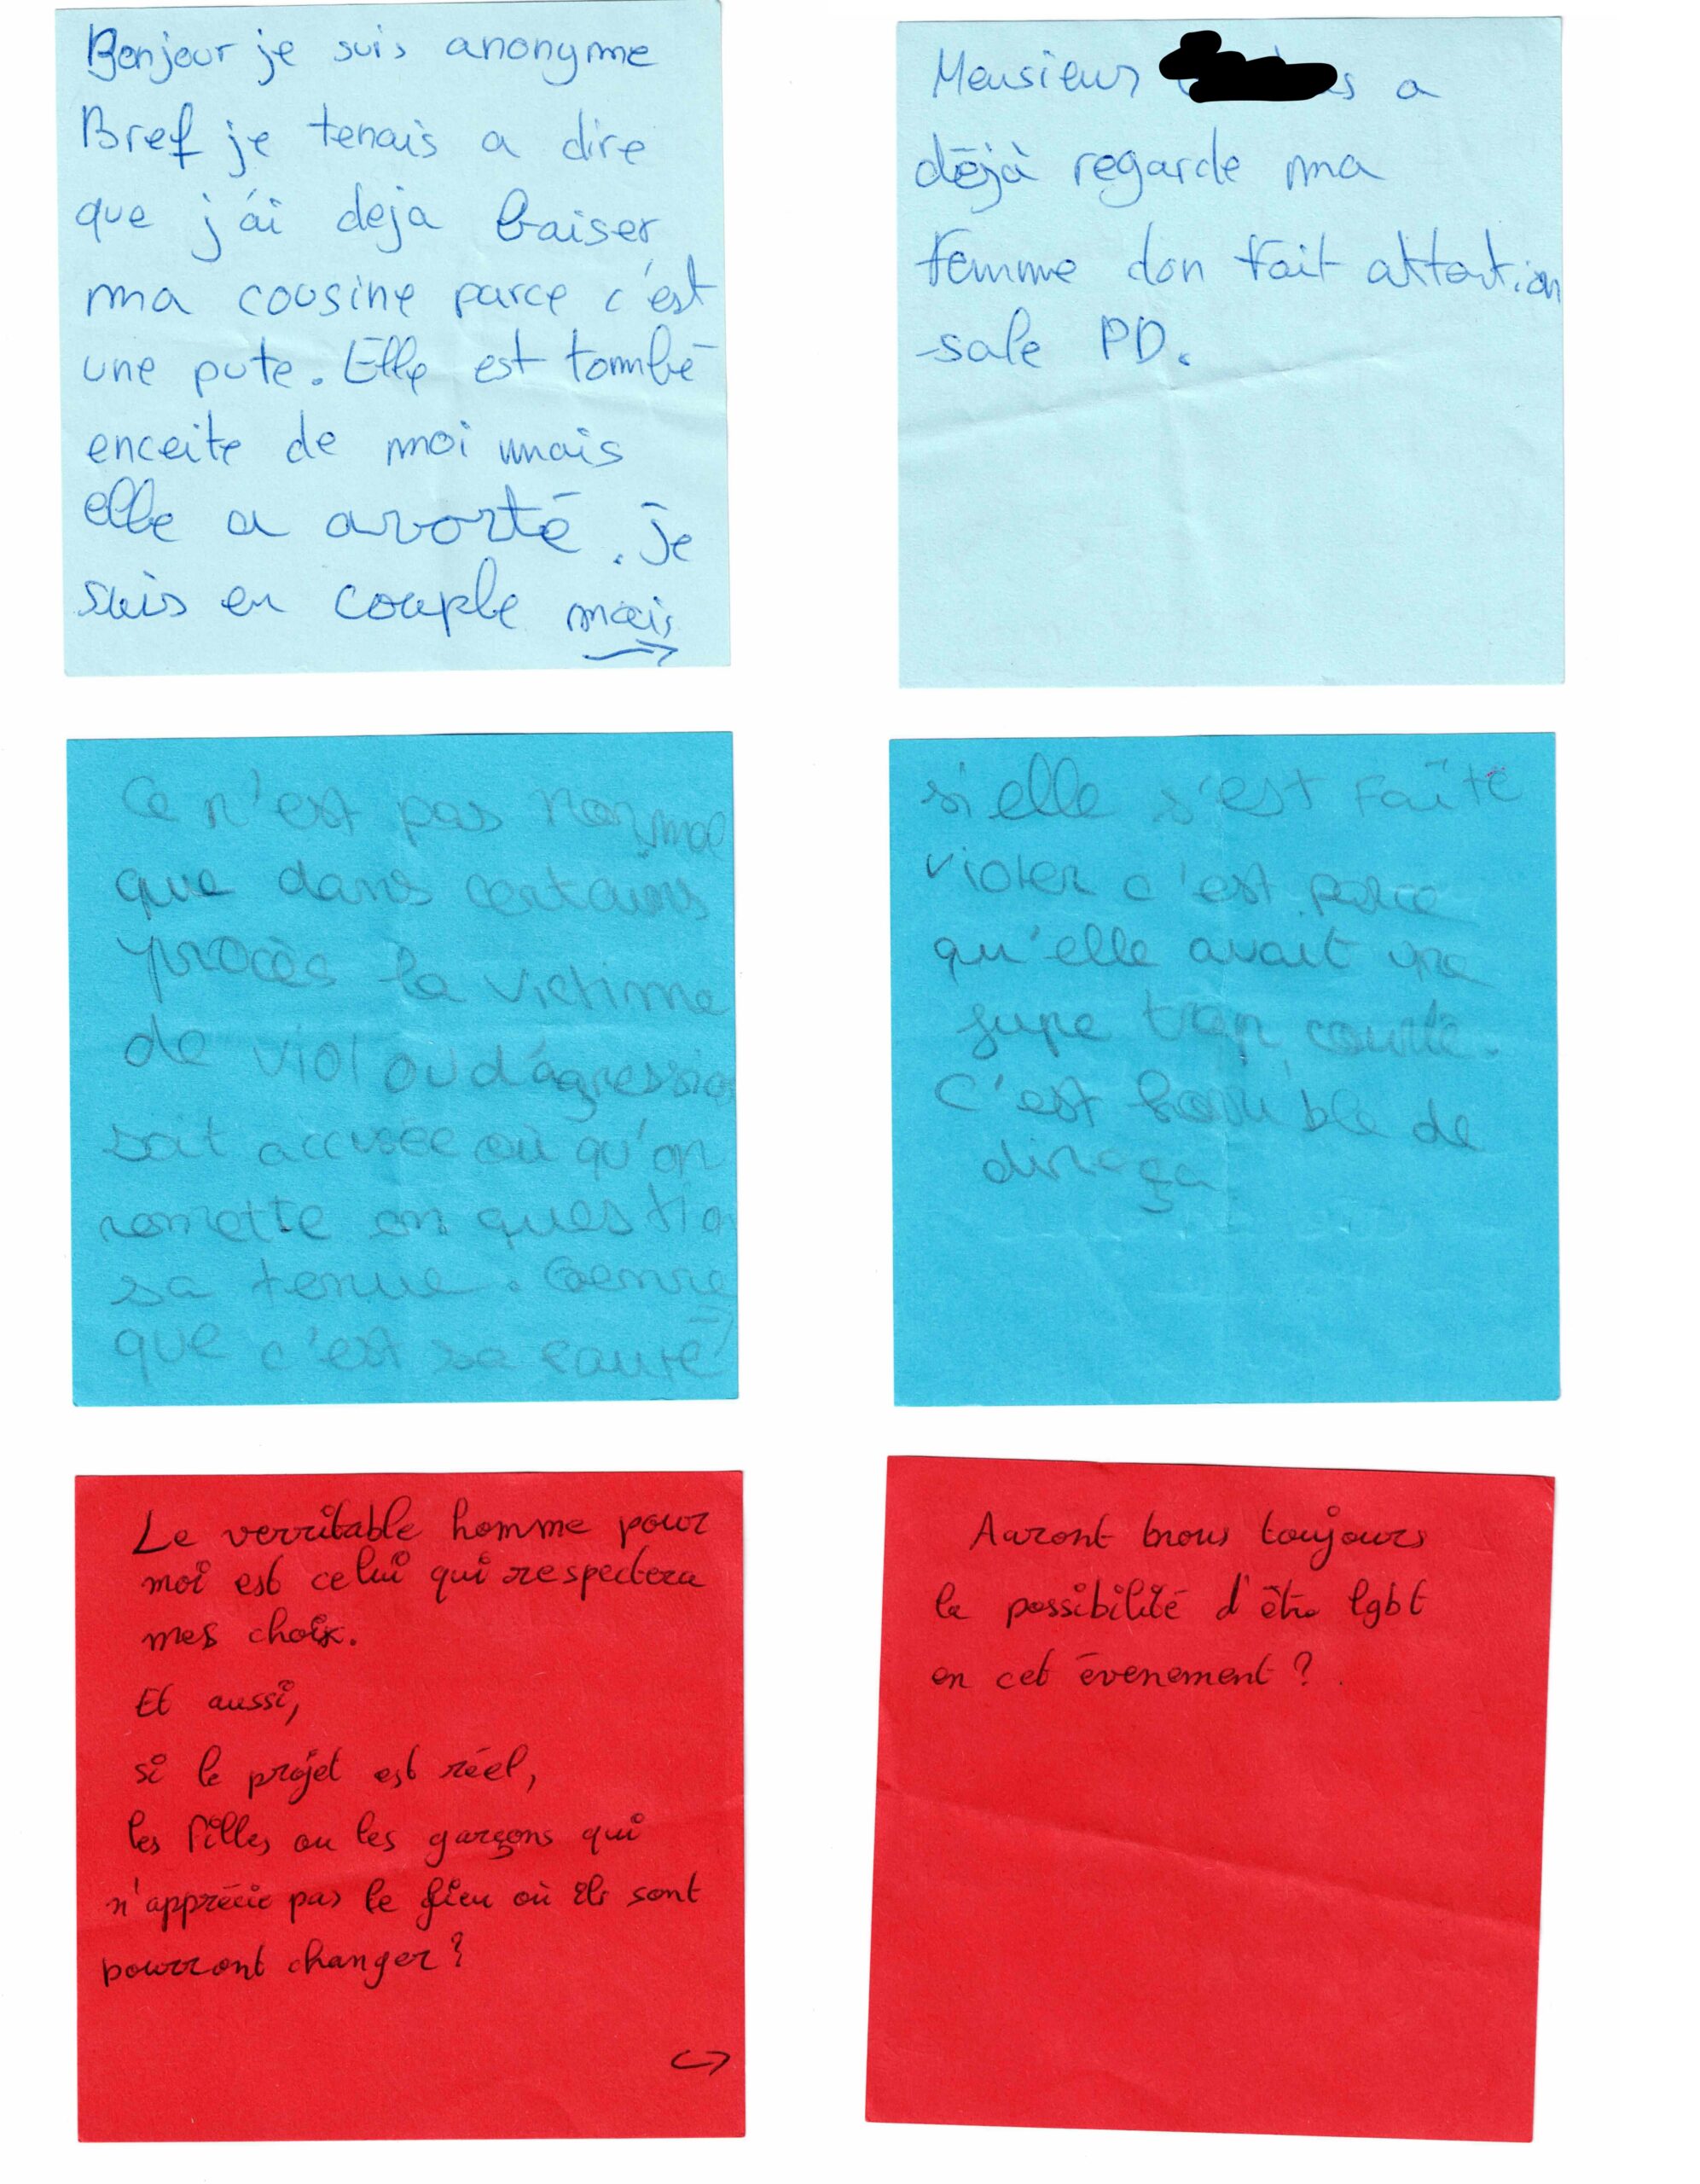 Bonjour je suis anonyme
Bref je tenais a dire
que j'ai deja baiser
ma cousine parce c'est
une pute. Elle est tombé
enceite de moi mais
elle a avorté. je
suis en couple mais
→
Monsieur s a
déjà regarde ma
femme don fait attention
sale PD.
Ce n'est pas normal
que dans certains
procès la victime
de viol ou d'agression
soit accusée où qu'on
remette en question
sa tenue. Genre
que c'est sa faute
→
si elle s'est faîte
violer c'est parce
qu'elle avait une
jupe trop courte.
C'est horrible de
dire ça
Le verritable homme pour
moi est celui qui respectera
mes choix.
Et aussi,
si le projet est réel,
les filles ou les garçons qui
n'apprécie pas le lieu où ils sont
pourront changer ?
→
Auront nous toujours
la possibilité d'être lgbt
en cet évenement ?